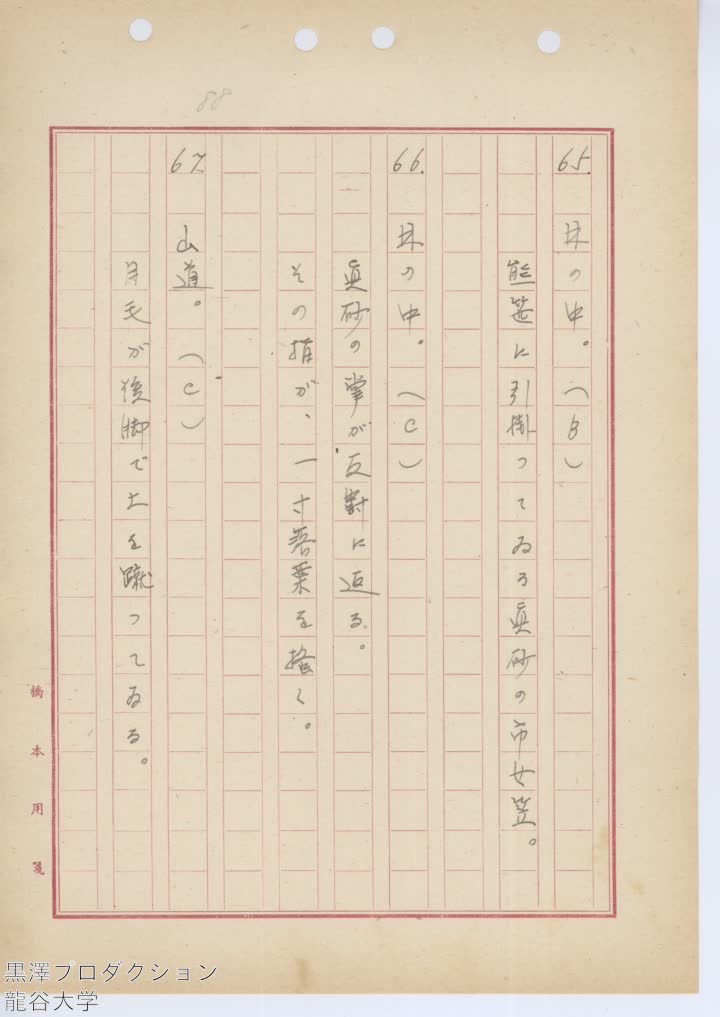 88
65. 林の中。（B）
熊笹に引掛つてゐる眞砂の市女笠。
66. 林の中。（C）
眞砂の掌が反對に返る。
その指が、一寸落葉を掻く。
67. 山道。（C）
月毛が後脚で土を蹴つてゐる。
橋本用箋
黒澤プロダクション
龍谷大学